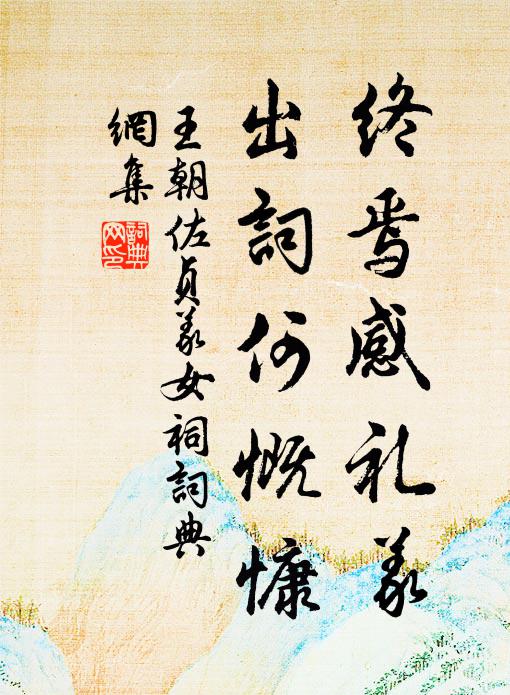 终焉感礼义
出词何慨慷
王朝佐贞义女祠词典
網集
詞典網印